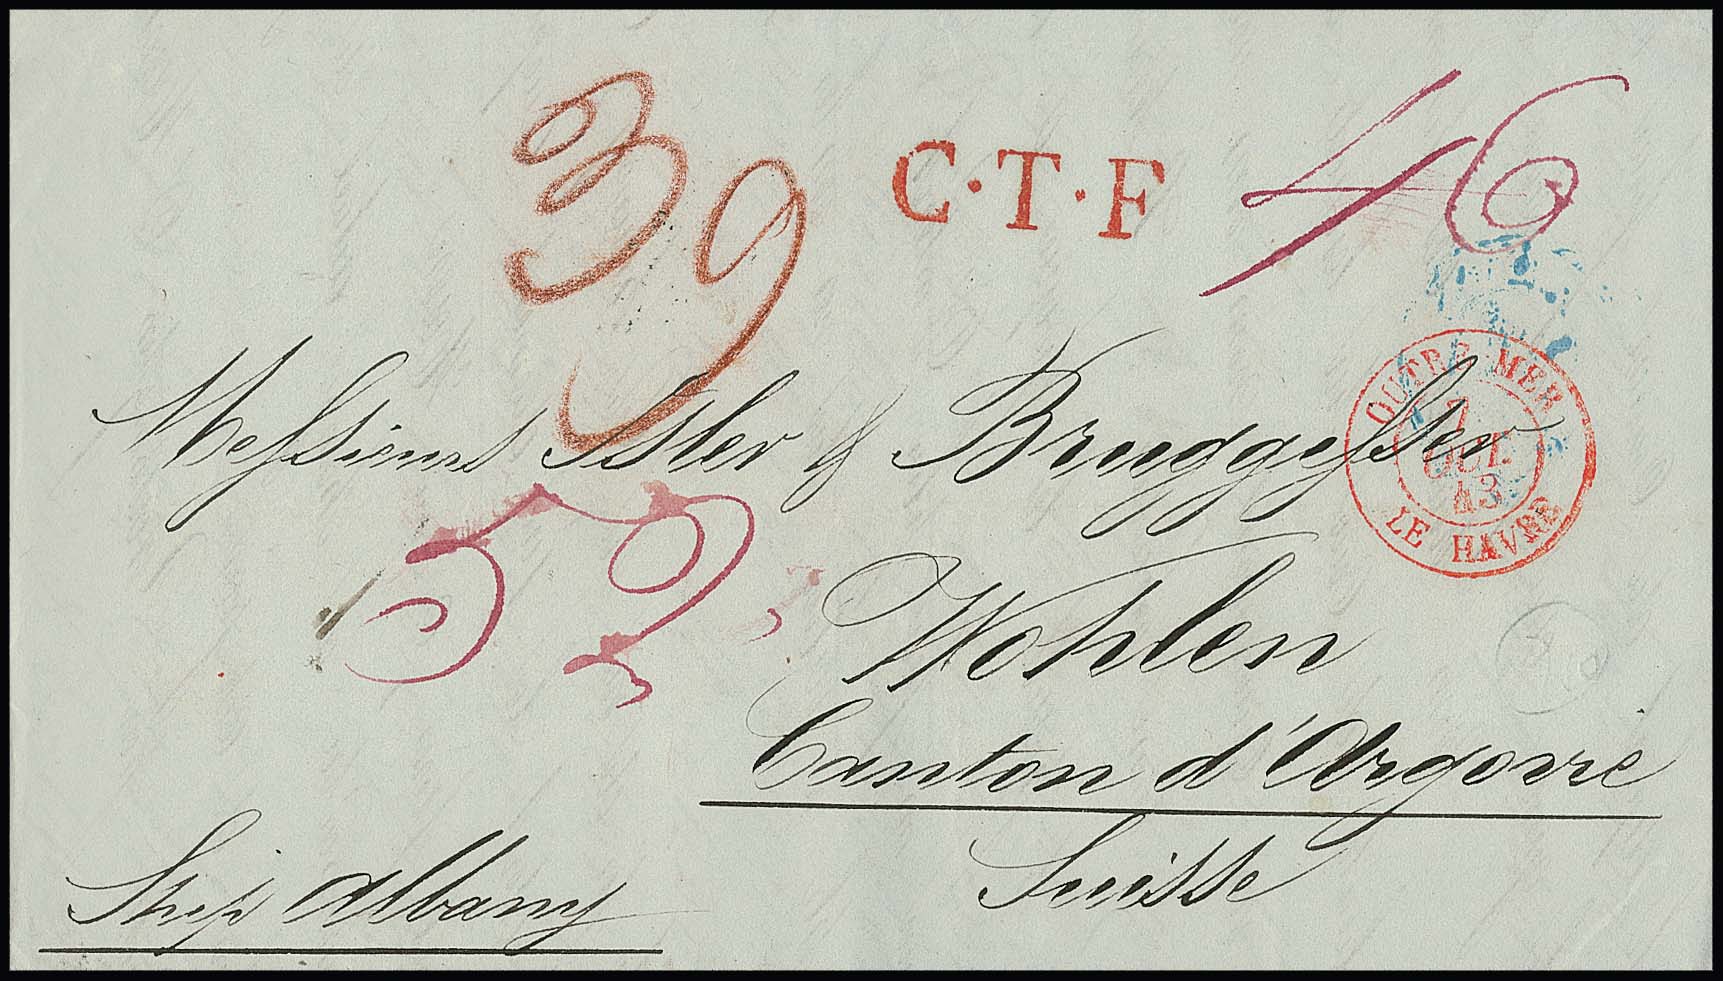 39
C·T·F
46
OUTRE MER
OCT.
43
LE HAVRE
Messieurs Isler & Bruggisser
59
Wohlen
Canton d'Argovie
Suisse
Ship Albany